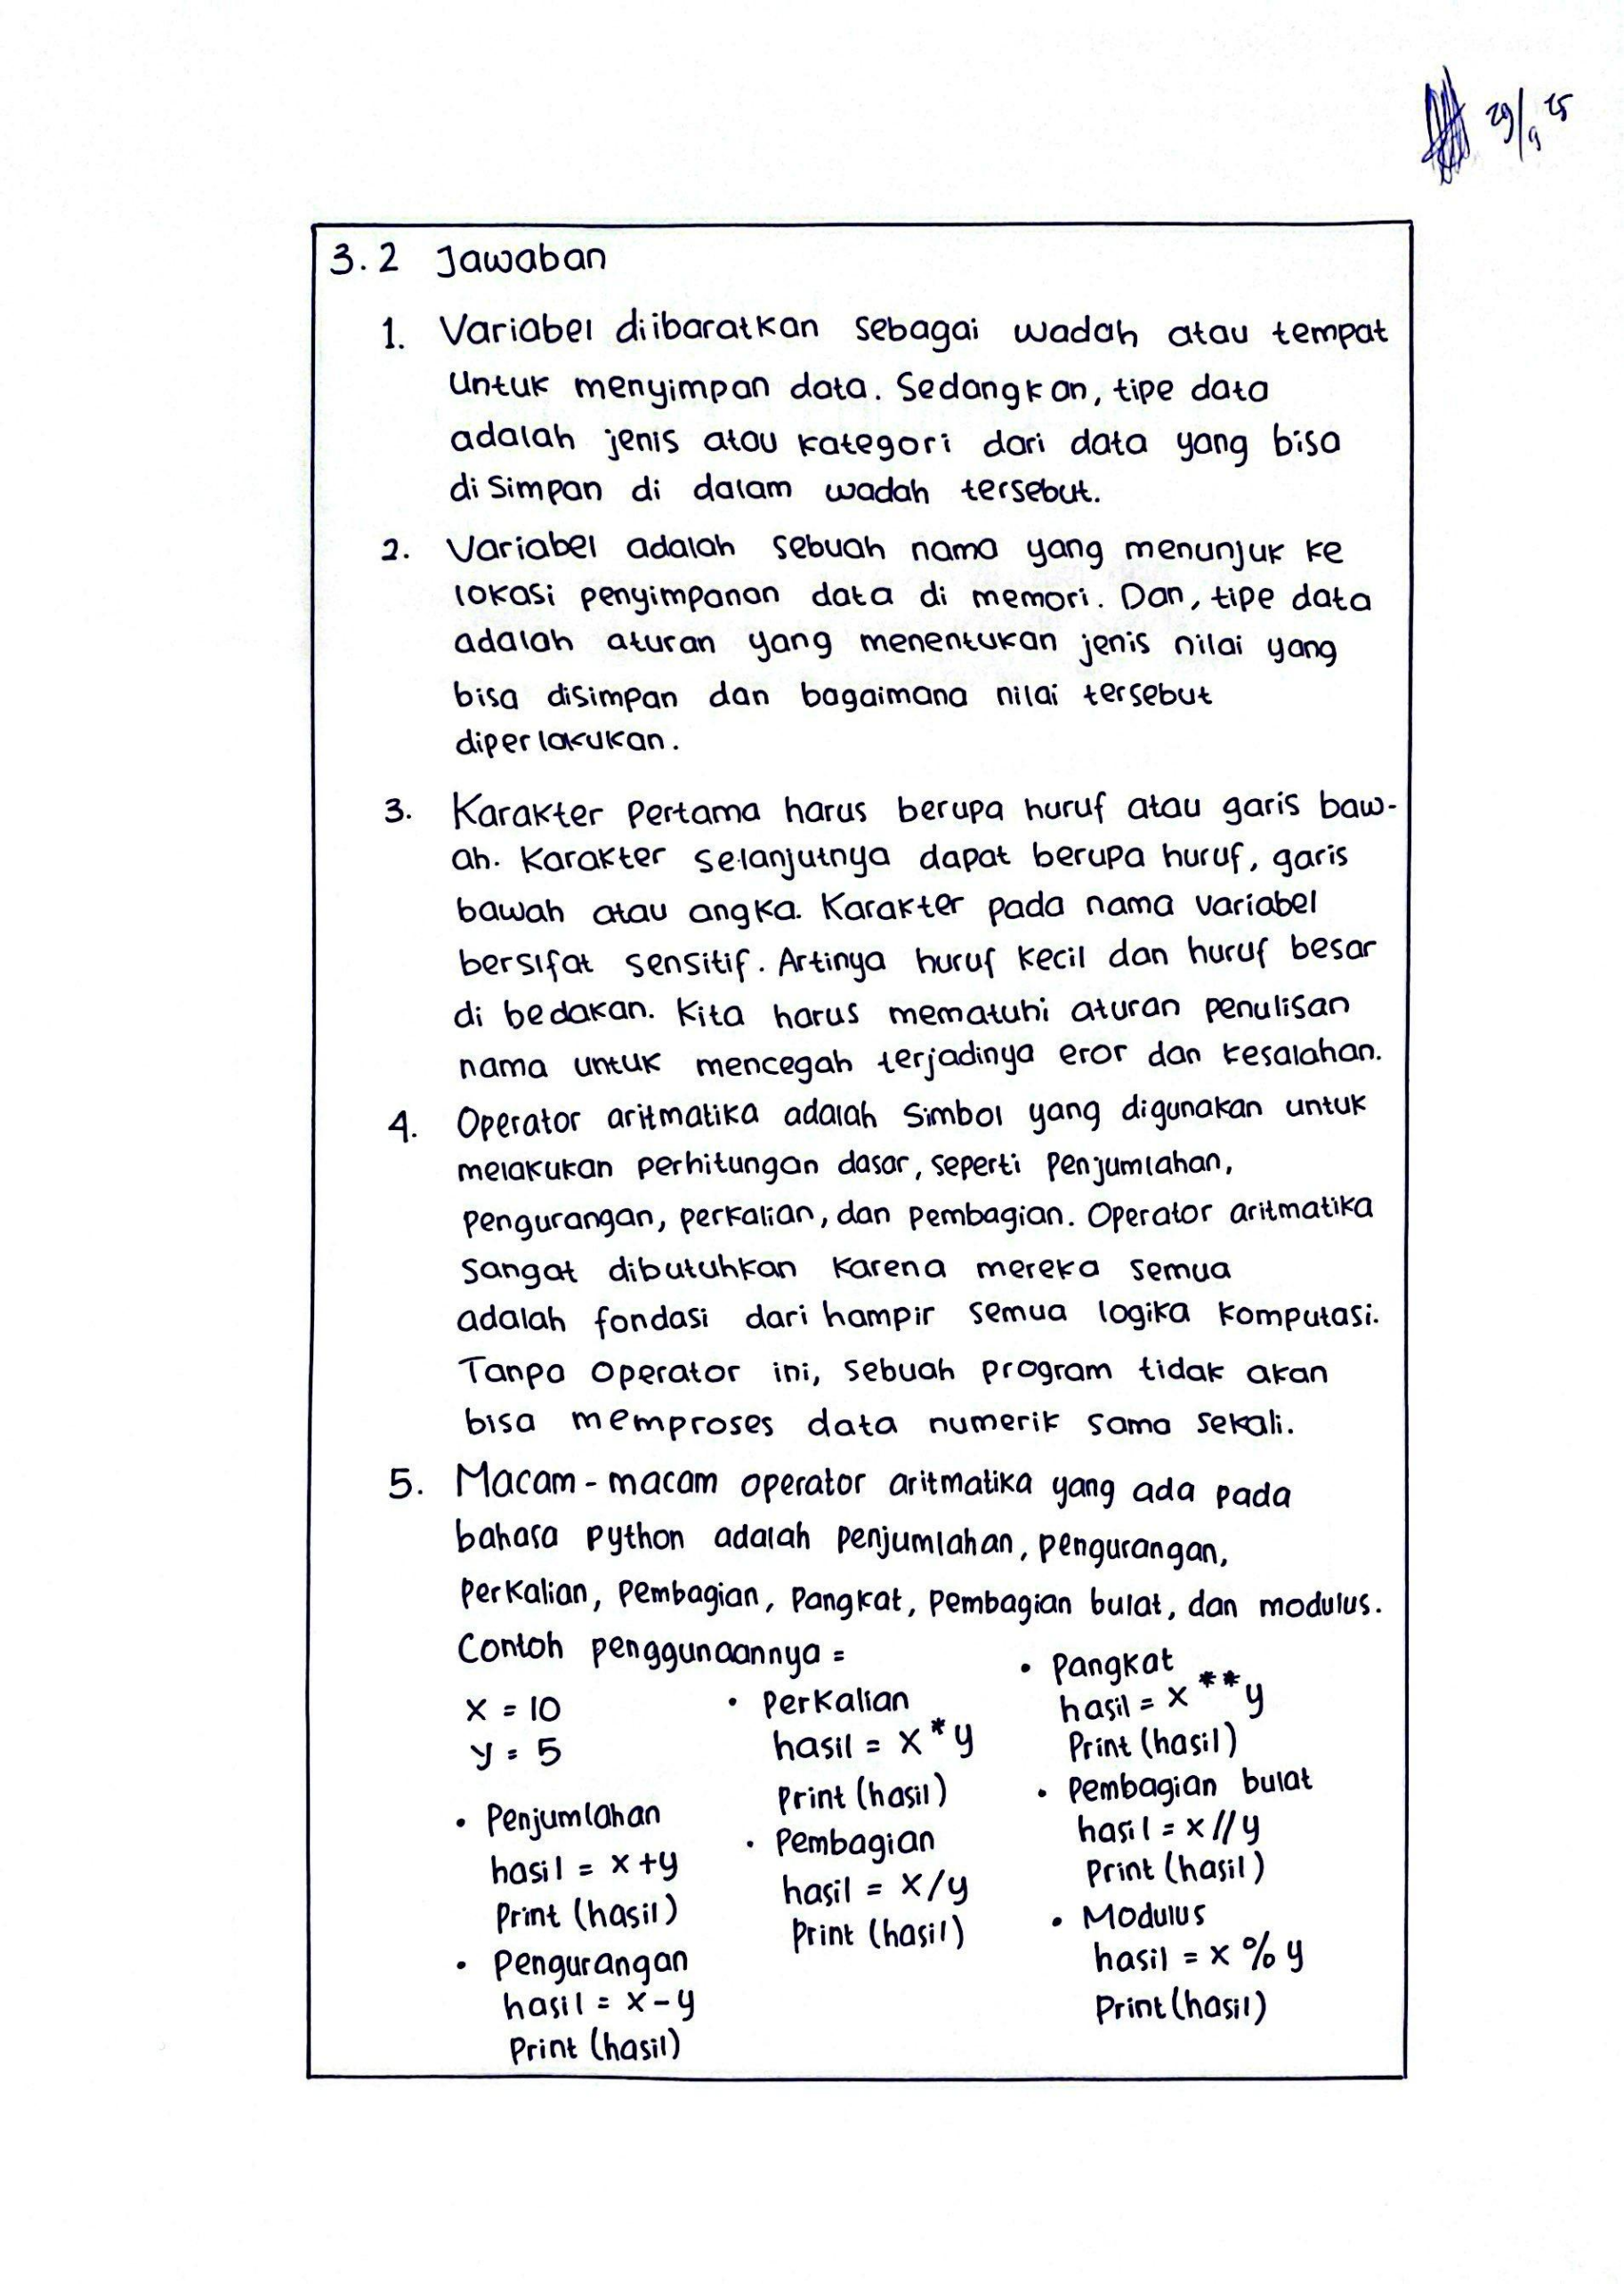 29/9 25
3.2 Jawaban
1. Variabel diibaratkan sebagai wadah atau tempat
untuk menyimpan data. Sedangkan, tipe data
adalah jenis atau kategori dari data yang bisa
disimpan di dalam wadah tersebut.
2. Variabel adalah sebuah nama yang menunjuk ke
lokasi penyimpanan data di memori. Dan, tipe data
adalah aturan yang menentukan jenis nilai yang
bisa disimpan dan bagaimana nilai tersebut
diperlakukan.
3. Karakter pertama harus berupa huruf atau garis baw-
ah. Karakter selanjutnya dapat berupa huruf, garis
bawah atau angka. Karakter pada nama variabel
bersifat sensitif. Artinya huruf kecil dan huruf besar
di bedakan. Kita harus mematuhi aturan penulisan
nama untuk mencegah terjadinya eror dan kesalahan.
4. Operator aritmatika adalah simbol yang digunakan untuk
melakukan perhitungan dasar, seperti penjumlahan,
pengurangan, perkalian, dan pembagian. Operator aritmatika
sangat dibutuhkan karena mereka semua
adalah fondasi dari hampir semua logika komputasi.
Tanpa operator ini, sebuah program tidak akan
bisa memproses data numerik sama sekali.
5. Macam-macam operator aritmatika yang ada pada
bahasa python adalah penjumlahan, pengurangan,
perkalian, pembagian, pangkat, pembagian bulat, dan modulus.
Contoh penggunaannya =
x = 10
y = 5
• Penjumlahan
hasil = x+y
Print (hasil)
• Pengurangan
hasil = x-y
Print (hasil)
• Perkalian
hasil = x*y
Print (hasil)
• Pembagian
hasil = x/y
Print (hasil)
• Pangkat
hasil = x**y
Print (hasil)
• Pembagian bulat
hasil = x//y
Print (hasil)
• Modulus
hasil = x % y
Print (hasil)